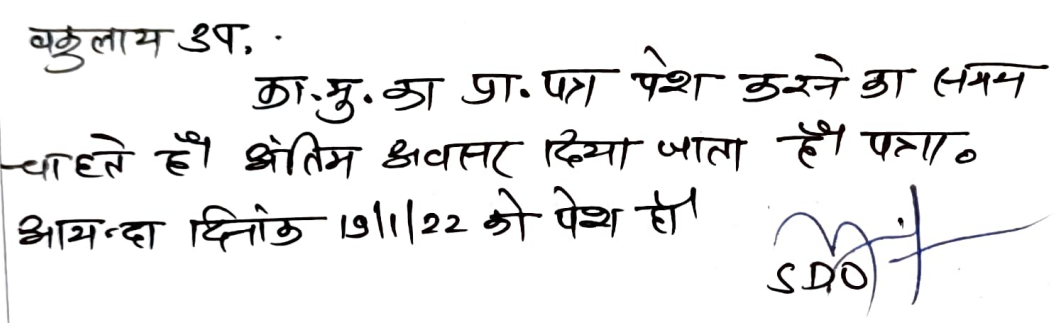 वकुलाय उप. .
का.मु.का प्रा. पत्र पेश करने का समय
चाहते है। अंतिम अवसर दिया जाता है। पत्रा०
आयन्दा दिनांक 19/1/22 को पेश हो।
SDO